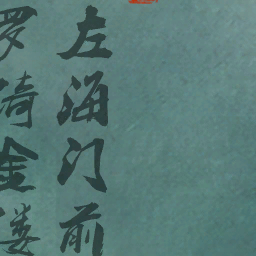 左海门前
罗绮金缕